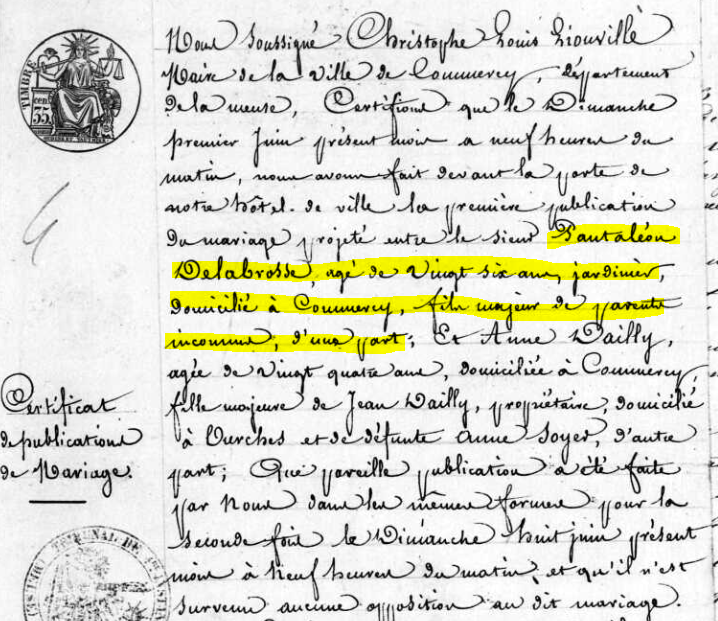 Nous soussigné Christophe Louis Liouville
Maire de la ville de Commercy, département
de la meuse, Certifions que le Dimanche
premier Juin présent mois a neuf heures du
matin, nous avons fait devant la porte de
notre hôtel-de ville la première publication
du mariage projeté entre le sieur Pantaléon
Delabrosse, agé de vingt six ans, jardinier,
domicilié à Commercy, fils majeur de parents
inconnus, d'une part; Et Anne Dailly,
agée de vingt quatre ans, domiciliée à Commercy,
fille majeure de Jean Dailly, propriétaire, domicilié
à Ourches et de défunte Anne Soyer, d'autre
part; Que pareille publication a été faite
par Nous dans les mêmes formes pour la
seconde fois le Dimanche huit juin présent
mois à Neuf heures du matin et qu'il n'est
survenu aucune opposition au dit mariage.
Certificat
de publications
de Mariage.
TIMBRE
35
TRIBUNAL DE